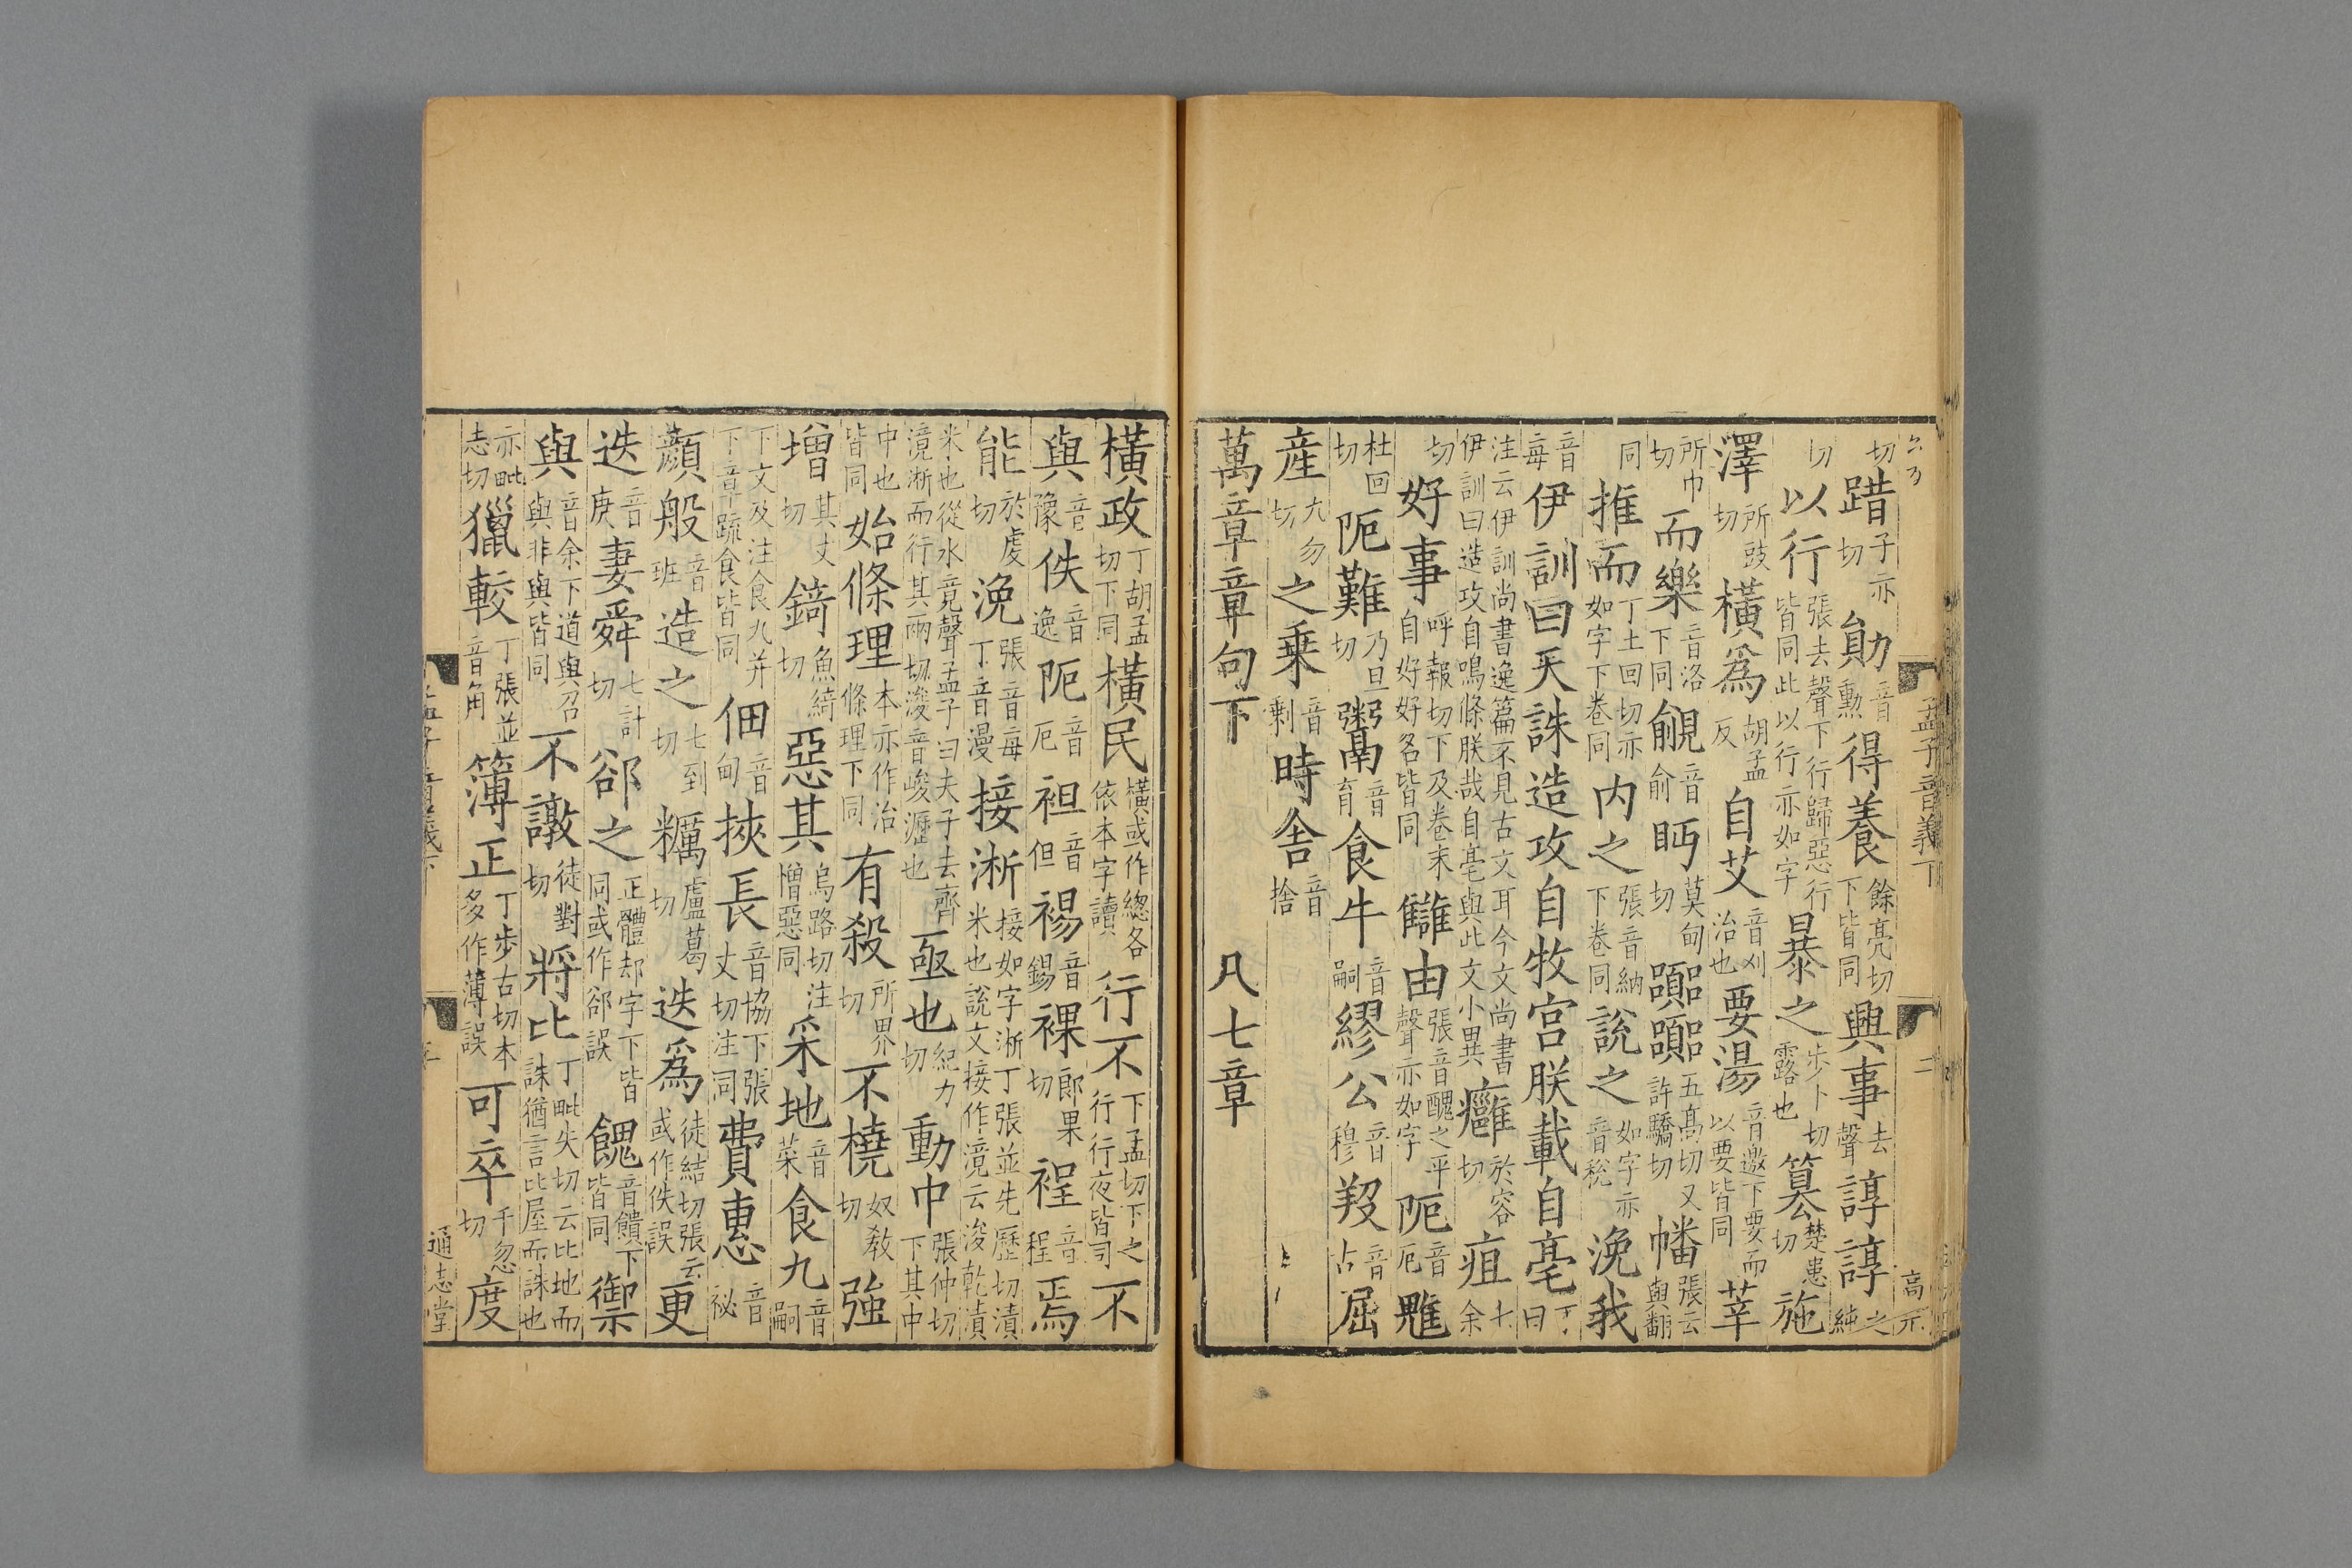 孟子音義下 二 高元
切蹉子亦切勛音勳得養餘亮切下皆同興事去聲諄諄之純
切以行張去聲下行歸惡行皆同此以行亦如字暴之步卜切露也篡楚患切施
澤所豉切橫爲胡孟反自艾音刈治也要湯音邀下要而以要皆同莘
所巾切而樂音洛下同覦音俞眄莫甸切嚻嚻五高切又許驕切幡張云與翻
同推而丁土回切亦如字下卷同內之張音納下卷同說之如字亦音稅浼我
音每伊訓曰天誅造攻自牧宫朕載自亳丁曰
注云伊訓尚書逸篇不見古文耳今文尚書伊訓曰造攻自鳴條朕哉自亳與此文小異癰於容切疽七余
切好事呼報切下及卷末自好好名皆同讎由張音醜之平聲亦如字阨音厄魋
杜回切阨難乃旦切鬻音育食牛音嗣繆公音穆羖音古屈
産九勿切之乗音剩時舍音捨
萬章章句下 凡七章
橫政丁胡孟切下同橫民橫或作總各依本字讀行不下孟切下之行行夜皆同不
與音豫佚音逸阨音厄袒音但裼音錫裸郎果切裎音程焉
能於虔切浼張音每丁音漫接淅接如字淅丁張並先歷切漬米也說文接作滰云浚乾漬
米也從水竟聲孟子曰夫子去齊滰淅而行其兩切浚音峻瀝也亟也紀力切動中張仲切下其中
中也皆同始條理本亦作治條理下同有殺所界切不橈奴教切強
增其丈切錡魚綺切惡其烏路切注憎惡同采地音菜食九音嗣
下文及注食九并下章疏食皆同佃音甸挾長音協下張丈切注同費惠音祕
顏般音班造之七到切糲盧葛切迭爲徒結切張云或作佚誤更
迭音庚妻舜七計切郤之正體却字下皆同或作郤誤餽音饋下皆同禦
與音余下道與召與非與皆同不譈徒對切將比丁毗失切云比地而誅猶言比屋而誅也
亦毗志切獵較丁張並音角簿正丁步古切本多作薄誤可卒千忽切度
孟子音義下 通志堂